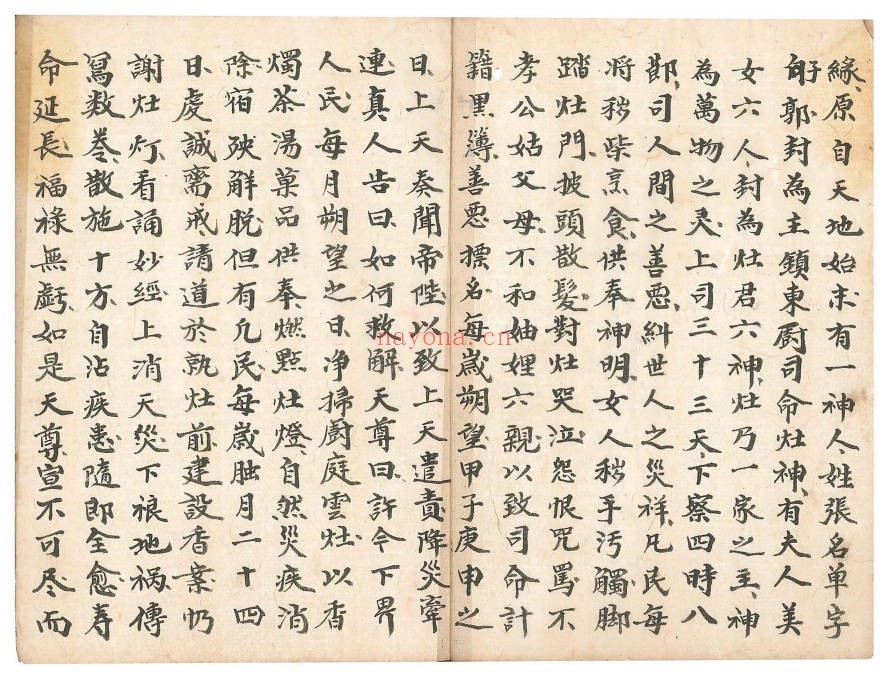 緣原自天地始末有一神人姓張名单字
子郭封為主鎮東厨司命灶神有夫人美
女六人封為灶君六神灶乃一家之主神
為萬物之灵上司三十三天下察四時八
節司人間之善恶糾世人之災祥凡民每
将秽柴烹食供奉神明女人秽手污觸脚
踏灶門披頭散髮對灶哭泣怨恨咒罵不
孝公姑父母不和妯娌六親以致司命計
籍黑簿善恶摽名每歲朔望甲子庚申之
日上天奏聞帝陛以致上天遣責降災牵
連真人告曰如何救解天尊曰許令下界
人民每月朔望之日净掃厨庭雲灶以香
燭茶湯菓品供奉燃點灶燈自然災疾消
除宿殃解脱但有凢民每歲臘月二十四
日虔誠斋戒請道於執灶前建設香案仍
謝灶灯看誦妙經上消天災下禳地祸傳
寫数卷散施十方自沾疾患隨即全愈寿
命延長福禄無虧如是天尊宣不可尽而
nayona.cn